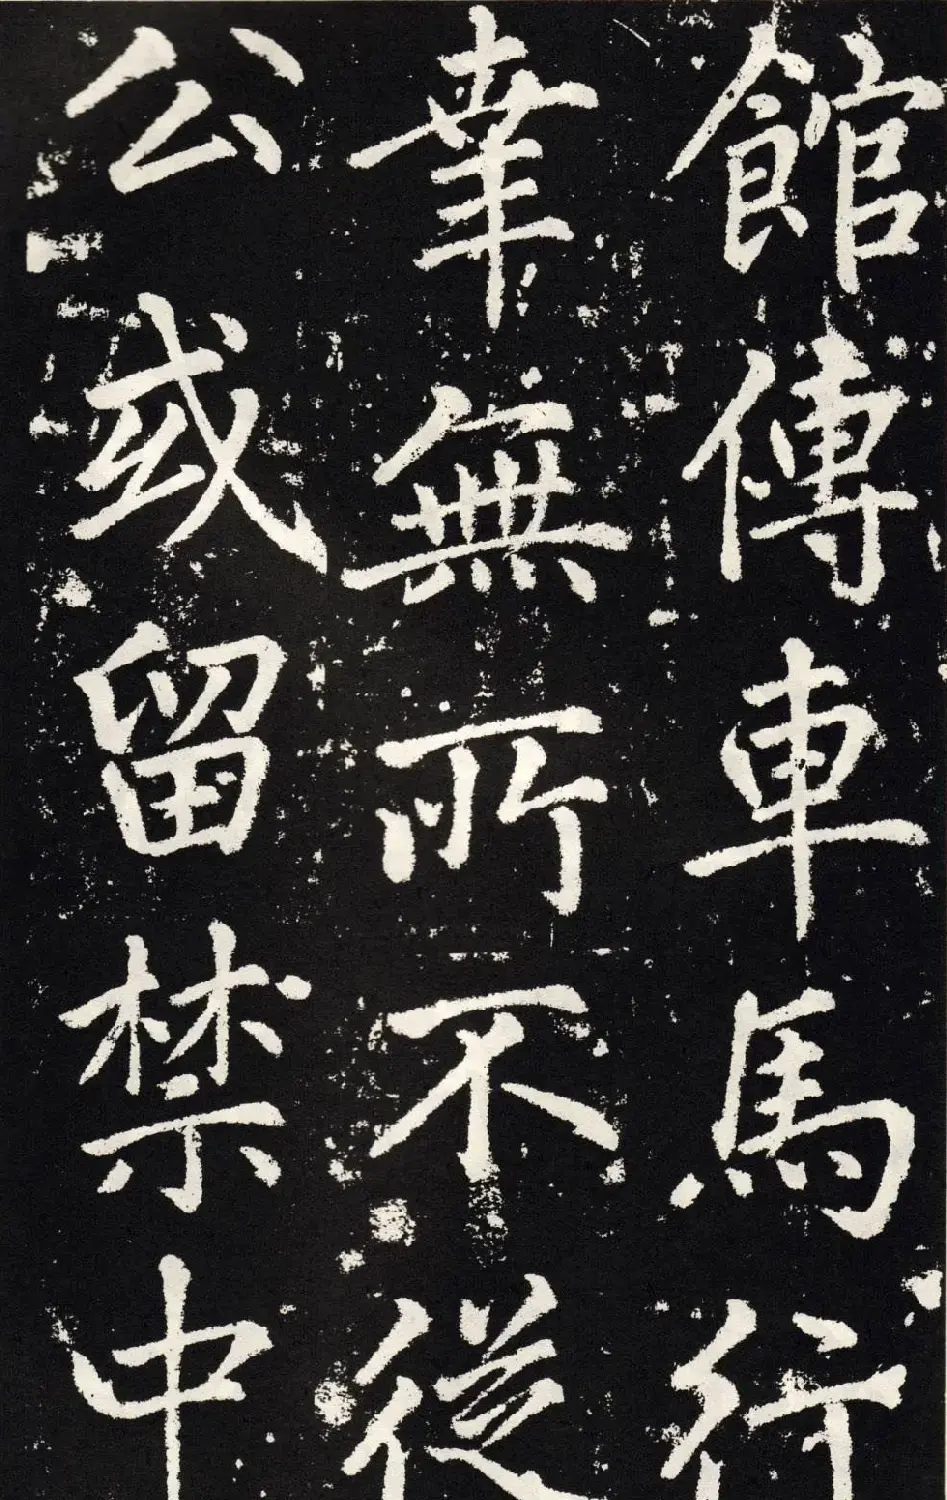 館傳車馬行
幸無所不從
公或留禁中